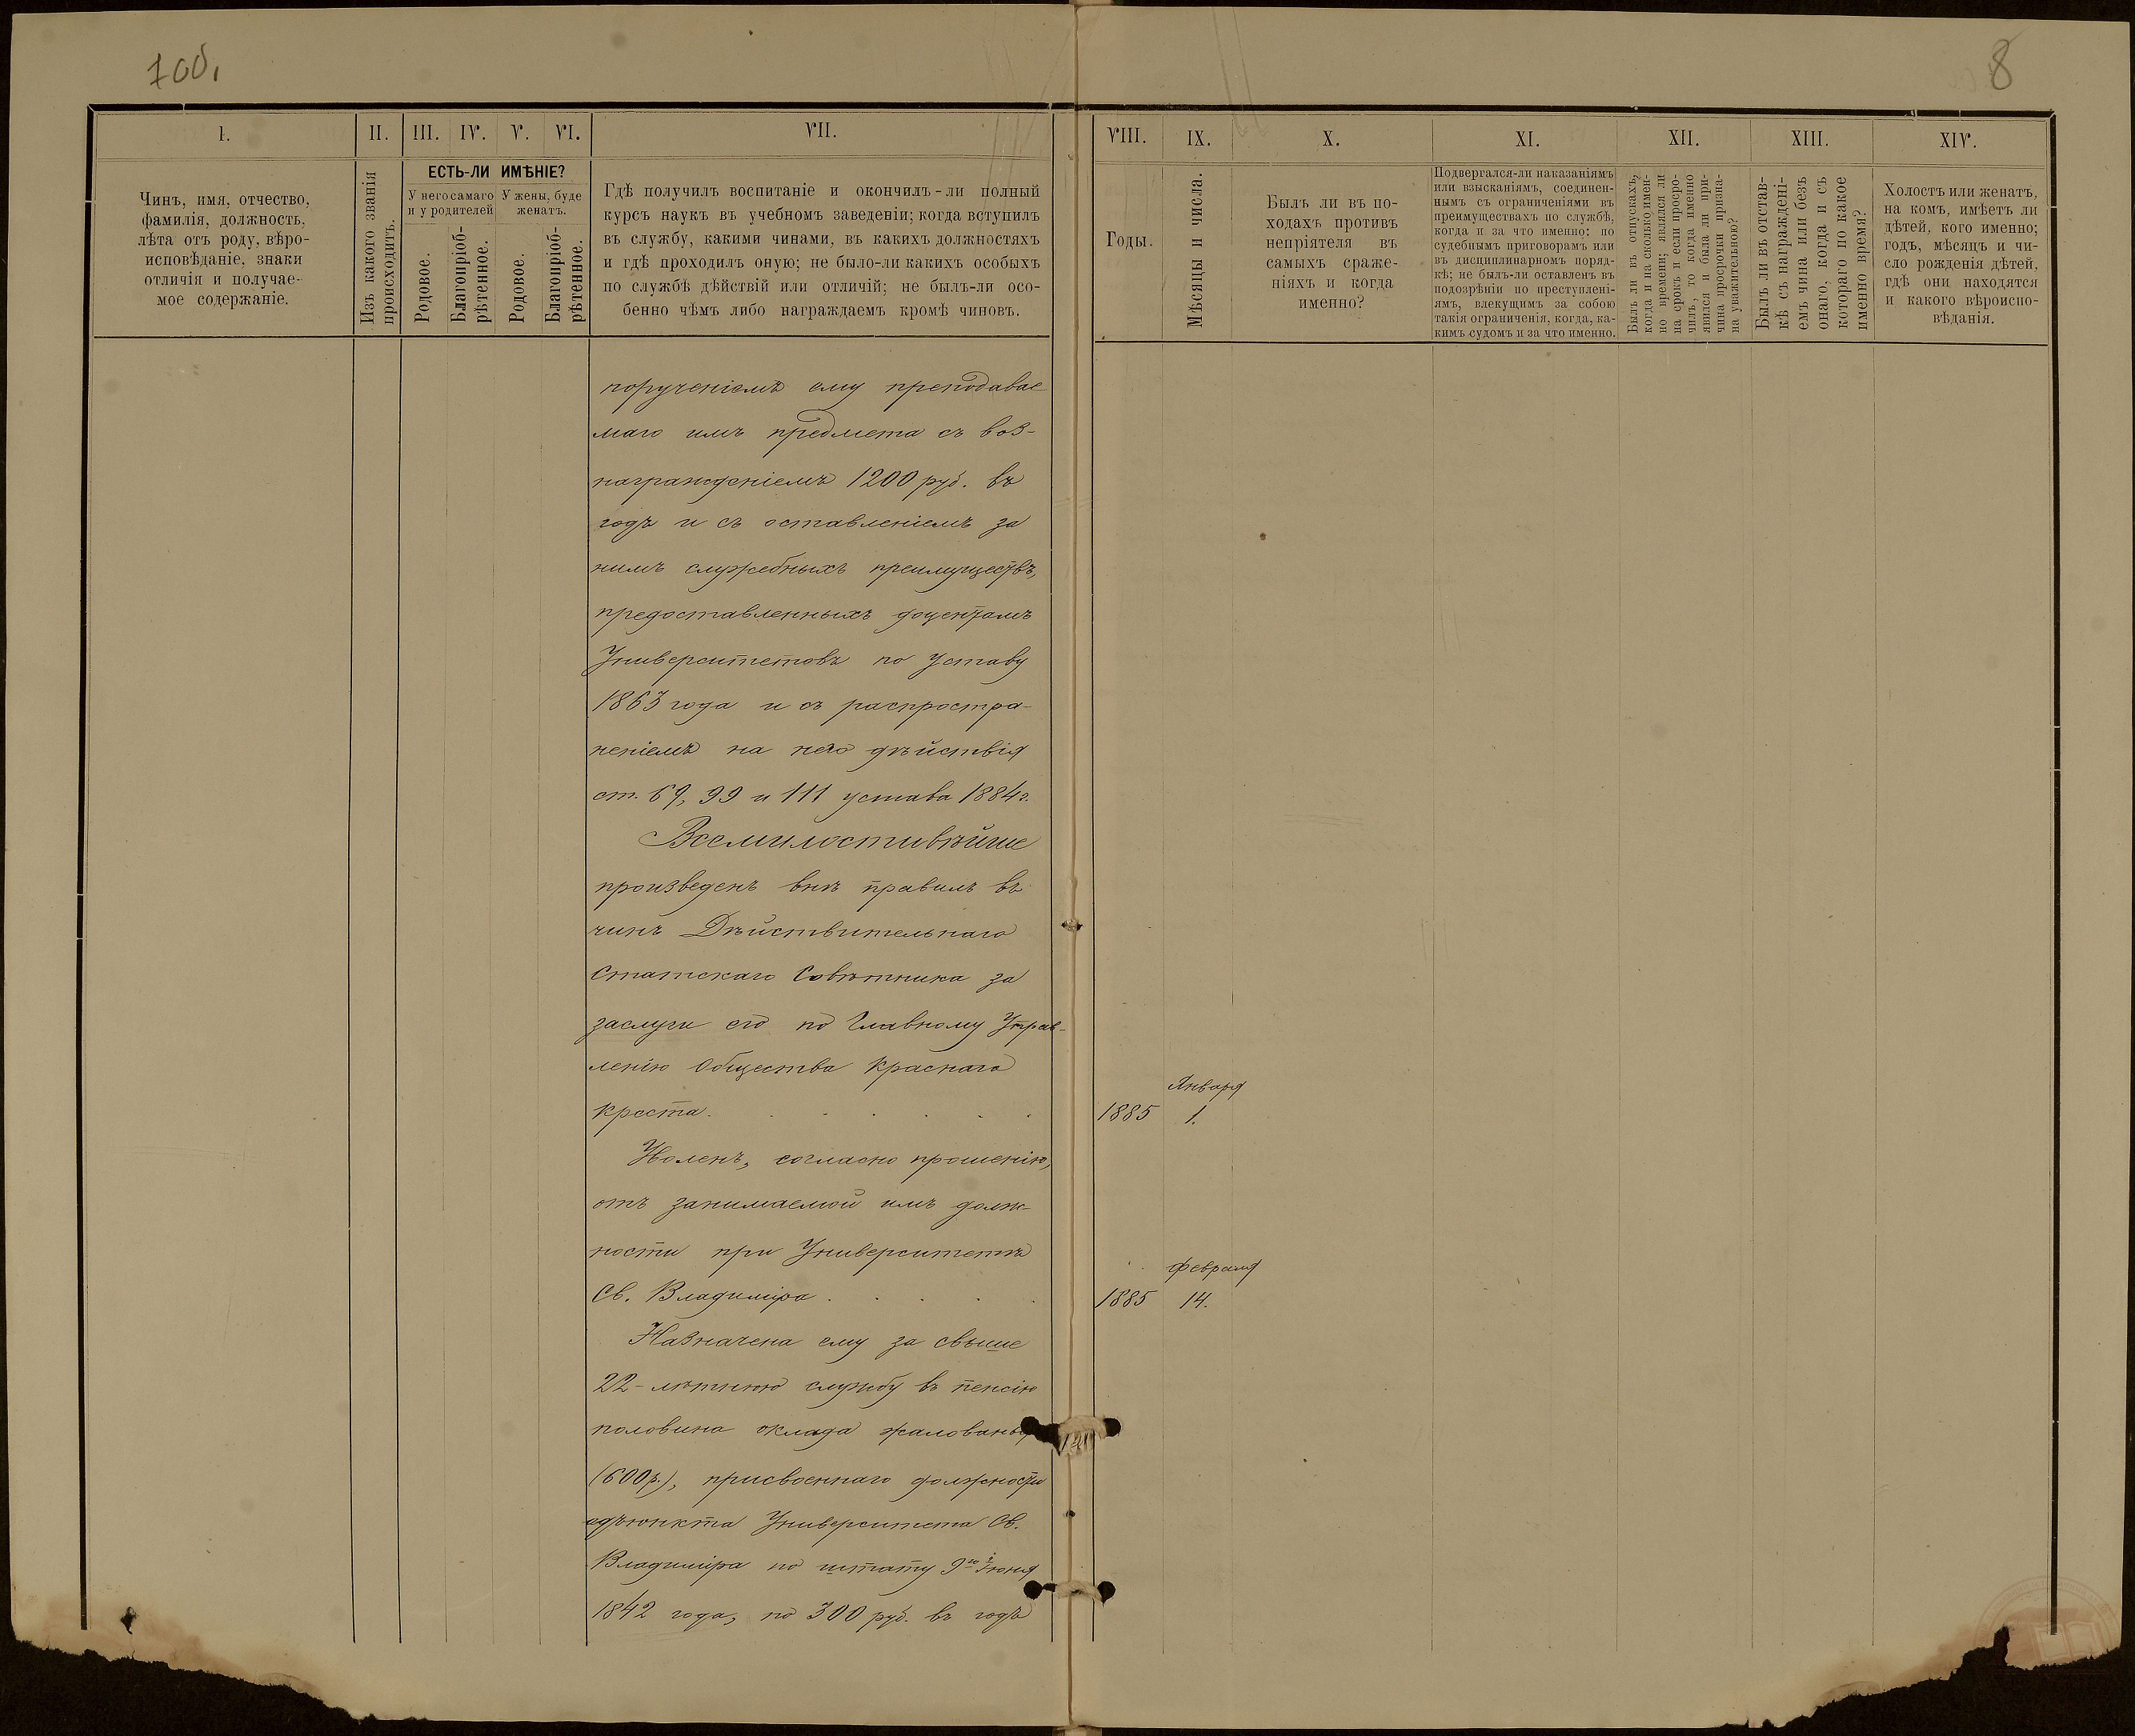 7 об.
8
I.
II.
III.
IV.
V.
VI.
VII.
VIII.
IX.
X.
XI.
XII.
XIII.
XIV.
Чинъ, имя, отчество,
фамилія, должность,
лѣта отъ роду, вѣро-
исповѣданіе, знаки
отличія и получае-
мое содержаніе.
Изъ какого званія
происходитъ.
ЕСТЬ-ЛИ ИМѢНІЕ?
У него самаго
и у родителей
У жены, буде
женатъ.
Родовое.
Благопріоб-
рѣтенное.
Родовое.
Благопріоб-
рѣтенное.
Гдѣ получилъ воспитаніе и окончилъ-ли полный
курсъ наукъ въ учебномъ заведеніи; когда вступилъ
въ службу, какими чинами, въ какихъ должностяхъ
и гдѣ проходилъ оную; не было-ли какихъ особыхъ
по службѣ дѣйствій или отличій; не былъ-ли осо-
бенно чѣмъ либо награждаемъ кромѣ чиновъ.
Годы.
Мѣсяцы и числа.
Былъ ли въ по-
ходахъ противъ
непріятеля въ
самыхъ сраже-
ніяхъ и когда
именно?
Подвергался-ли наказаніямъ
или взысканіямъ, соединен-
нымъ съ ограниченіями въ
преимуществахъ по службѣ,
когда и за что именно; по
судебнымъ приговорамъ или
въ дисциплинарномъ поряд-
кѣ; не былъ-ли оставленъ въ
подозрѣніи по преступлені-
ямъ, влекущимъ за собою
такія ограниченія, когда, ка-
кимъ судомъ и за что именно.
Былъ ли въ отпускахъ,
когда и на сколько имен-
но времени; являлся ли
на срокъ и если просро-
чилъ, то когда именно
явился и была ли при-
чина просрочки призна-
на уважительною?
Былъ ли въ отстав-
кѣ съ награжденi-
емъ чина или безъ
онаго, когда и съ
котораго по какое
именно время?
Холостъ или женатъ,
на комъ, имѣетъ ли
дѣтей, кого именно;
годъ, мѣсяцъ и чи-
сло рожденія дѣтей,
гдѣ они находятся
и какого вѣроиспо-
вѣданія.
порученіемъ ему преподавае
маго имъ предмета съ воз-
награжденіемъ 1200 руб. въ
годъ и съ оставленіемъ за
нимъ служебныхъ преимуществъ,
предоставленныхъ доцентамъ
Университетовъ по уставу
1863 года и съ распростра-
неніемъ на него дѣйствія
ст. 69, 99 и 111 устава 1884 г.
Всемилостивѣйше
произведенъ внѣ правилъ въ
чинъ Дѣйствительнаго
Статскаго Совѣтника за
заслуги его по Главному Управ-
ленію Общества Краснаго
Креста.
Января
1885 1.
Уволенъ, согласно прошенію,
отъ занимаемой имъ долж-
ности при Университетѣ
Св. Владиміра
Февраля
1885 14.
Назначена ему за свыше
22-лѣтнюю службу въ пенсію
половина оклада жалованья
(600 р.), присвоеннаго должности
адъюнкта Университета Св.
Владиміра по штату 9го Іюня
1842 года, по 300 руб. въ годъ